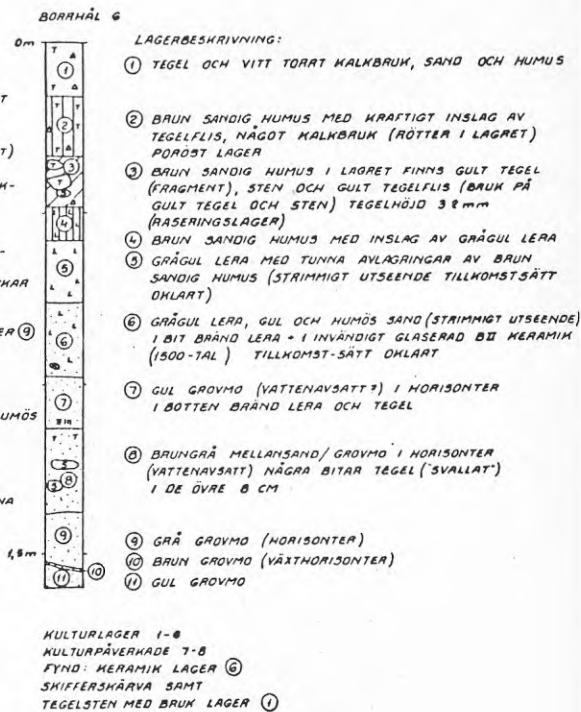 BORRHÅL 6
0m
LAGERBESKRIVNING:
① TEGEL OCH VITT TORRT KALKBRUK, SAND OCH HUMUS
② BRUN SANDIG HUMUS MED KRAFTIGT INSLAG AV
TEGELFLIS, NÅGOT KALKBRUK (RÖTTER I LAGRET)
PORÖST LAGER
③ BRUN SANDIG HUMUS I LAGRET FINNS GULT TEGEL
(FRAGMENT), STEN OCH GULT TEGELFLIS (BRUK PÅ
GULT TEGEL OCH STEN) TEGELHÖJD 38mm
(RASERINGSLAGER)
④ BRUN SANDIG HUMUS MED INSLAG AV GRÅGUL LERA
⑤ GRÅGUL LERA MED TUNNA AVLAGRINGAR AV BRUN
SANDIG HUMUS (STRIMMIGT UTSEENDE TILLKOMSTSÄTT
OKLART)
⑥ GRÅGUL LERA, GUL OCH HUMÖS SAND (STRIMMIGT UTSEENDE)
1 BIT BRÄND LERA + 1 INVÄNDIGT GLASERAD BII KERAMIK
(1500-TAL) TILLKOMST-SÄTT OKLART
⑦ GUL GROVMO (VATTENAVSATT?) I HORISONTER
I BOTTEN BRÄND LERA OCH TEGEL
⑧ BRUNGRÅ MELLANSAND/GROVMO I HORISONTER
(VATTENAVSATT) NÅGRA BITAR TEGEL ("SVALLAT")
I DE ÖVRE 8 CM
⑨ GRÅ GROVMO (HORISONTER)
⑩ BRUN GROVMO (VÄXTHORISONTER)
⑪ GUL GROVMO
1,5m
KULTURLAGER 1-6
KULTURPÅVERKADE 7-8
FYND: KERAMIK LAGER ⑥
SKIFFERSKÄRVA SAMT
TEGELSTEN MED BRUK LAGER ①
T
T)
K-
-
KAR
ER ⑨
UMÖS
NA
① ② ③ ④ ⑤ ⑥ ⑦ ⑧ ⑨ ⑩ ⑪